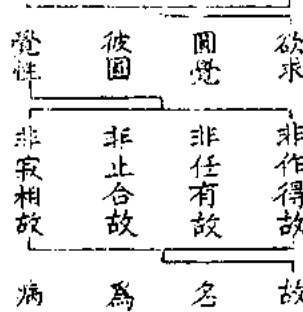 欲求
圓覺
彼圓
覺性
非作得故
非任有故
非止合故
非寂相故
故
名
爲
病